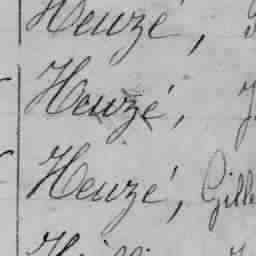 Heuzé,
Heuzé,
Heuzé, Gille